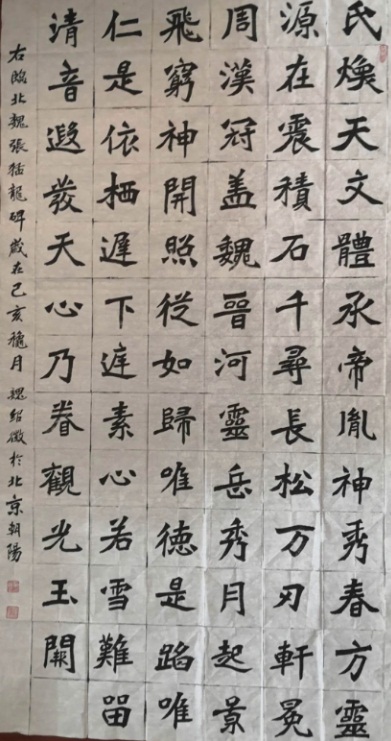 氏煥天文體承帝胤神秀春方靈
源在震積石千尋長松万刃軒冕
周漢冠盖魏晉河靈岳秀月起景
飛窮神開照從如歸唯德是蹈唯
仁是依栖遲下庭素心若雪難留
清音遐發天心乃眷觀光玉闕
右臨北魏張猛龍碑歲在己亥穐月 魏紹於北京朝陽